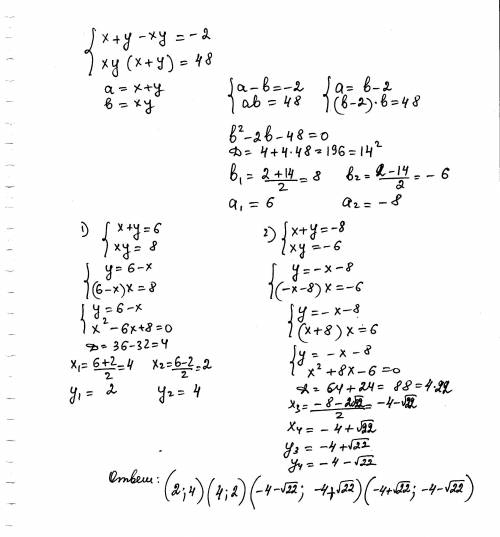 { x+y-xy = -2
{ xy(x+y) = 48
a = x+y
b = xy
{ a-b=-2
{ ab = 48
{ a = b-2
{ (b-2)·b=48
b²-2b-48=0
D = 4+4·48=196=14²
b₁ = (2+14)/2 = 8 b₂ = (2-14)/2 = -6
a₁ = 6 a₂ = -8
1) { x+y=6
{ xy = 8
{ y=6-x
{ (6-x)x=8
{ y=6-x
{ x²-6x+8=0
D = 36-32=4
x₁=(6+2)/2=4 x₂=(6-2)/2=2
y₁ = 2 y₂ = 4
2) { x+y=-8
{ xy=-6
{ y=-x-8
{ (-x-8)x=-6
{ y=-x-8
{ (x+8)x=6
{ y= -x-8
{ x²+8x-6=0
D = 64+24= 88=4·22
x₃=(-8-2√22)/2=-4-√22
x₄=-4+√22
y₃=-4+√22
y₄=-4-√22
Ответ: (2;4)(4;2)(-4-√22; -4+√22)(-4+√22; -4-√22)